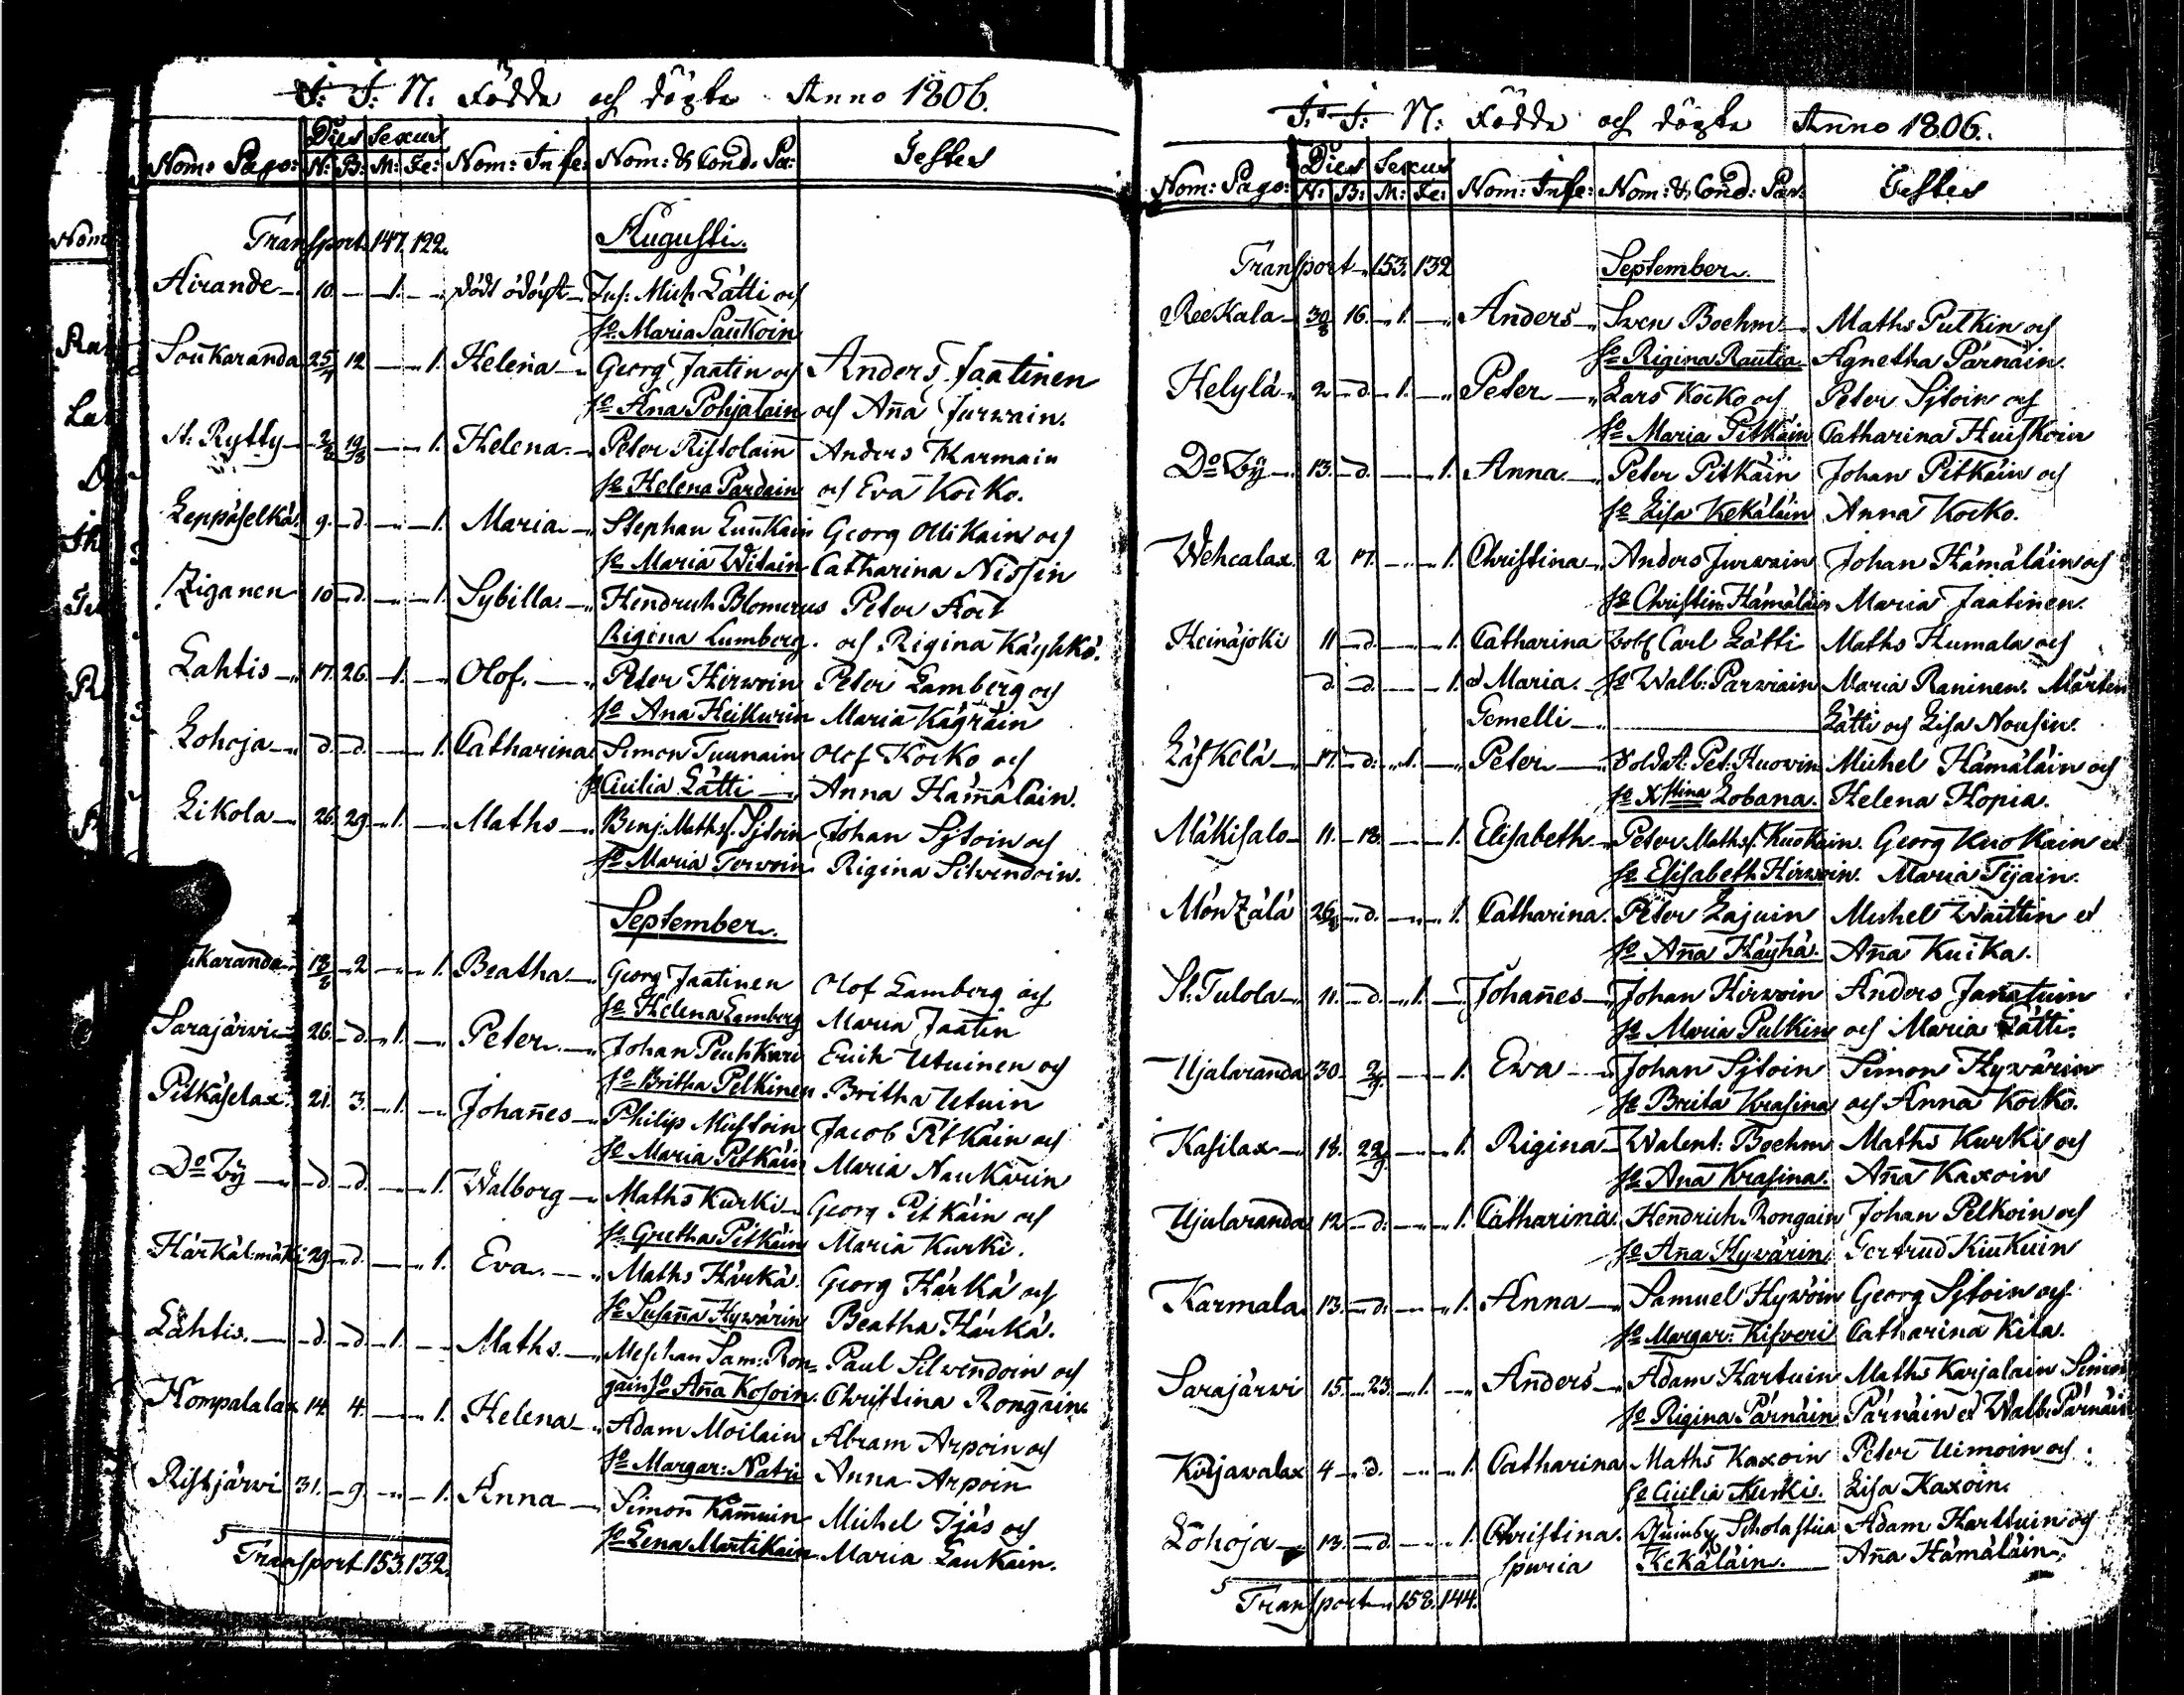 J: J: N: Födde och döpte Anno 1806.
Nom: Pago: Dies N: B: Sexus M: Fe: Nom: Infe: Nom: & Cond: Pa: Testes
Transport 147. 122. Augusti.
Airande 10. 1. dödt ödöpt Inh: Mich Lätti och
h:o Maria Saukoin
Soukaranda 25/7 12 1. Helena Georg Jaatin och Anders Jaatinen
h:o Ana Pohjalain och Aña Jurwain.
St: Rytty 2/8 19/8 1. Helena Peter Ristolain Anders Karmain
h:o Helena Pardain och Eva Kocko.
Leppäselkä 9. d. 1. Maria Stephan Luukain Georg Ollikain och
h:o Maria Witain Catharina Nissin
Ziganen 10 d. 1. Sybilla Hendrich Blomerus Peter Kort
Rigina Lumberg. och Rigina Käyhkö.
Lahtis 17. 26. 1. Olof. Peter Hirwoin Peter Lamberg och
h:o Ana Heikurin Maria Kägräin
Lohoja d. d. 1. Catharina Simon Tuunain Olof Kocko och
h:o Cicilia Lätti Anna Hämäläin.
Likola 26. 29. 1. Maths Benj: Maths: Sjtoin Johan Sjtoin och
h:o Maria Terwoin Rigina Silvendoin.
September.
ukaranda 18/8 2 1. Beatha Georg Jaatinen Olof Lamberg och
h:o Helena Lamberg Maria Jaatin
Sarajärwi 26. d. 1. Peter Johan Peuhkuri Erich Utuinen och
h:o Britha Pelkinen Britha Utuin
Pitkäselax. 21. 3. 1. Johañes Philip Mustoin Jacob Pitkäin och
h:o Maria Pitkäin Maria Naukarin
D:o By d. d. 1. Walborg Maths Kurki Georg Pitkäin och
h:o Gretha Pitkäin Maria Kurki.
Härkäl:mäki 29. d. 1. Eva Maths Härkä. Georg Härkä och
h:o Susaña Hywärin Beatha Härkä.
Lahtis. d. d. 1. Maths Meschan Sam: Ron= Paul Silwendoin och
gain h:o Aña Kosoin. Christina Rongain.
Hompalalax 14. 4. 1. Helena Adam Moilain Abram Arpoin och
h:o Margar: Natri Anna Arpoin
Ristjärwi 31. 9. 1. Anna Simon Kämuin Michel Ijäs och
h:o Lena Martikain Maria Laukain.
Transport 153. 132.
J: J: N: Födde och döpte Anno 1806.
Nom: Pago: Dies N: B: Sexus M: Fe: Nom: Infe: Nom: & Cond: Par: Testes
Transport 153. 132 September.
Reekala 30/8 16. 1. Anders Sven Boehm Maths Putkin och
h:o Rigina Rautia Agnetha Pärnäin.
Helylä 2 d. 1. Peter Lars Kocko och Peter Sjtoin och
h:o Maria Pitkäin Catharina Huiskoin
D:o By 13. d. 1. Anna Peter Pitkäin Johan Pitkäin och
h:o Lisa Kekäläin Anna Kocko.
Wehcalax 2 17. 1. Christina Anders Jurwain Johan Hämäläin och
h:o Christin: Hämäläin Maria Jaatinen.
Heinäjoki 11 d. 1. Catharina Carl Lätti Maths Humala och
d. d. 1. d Maria. h:o Walb: Parwiain Maria Raninen. Mårten
Gemelli Lätti och Lisa Nousin.
Läskelä 17. d. 1. Peter Soldat: Pet: Huovin Michel Hämäläin och
h:o Xstina Lobana. Helena Hopia.
Mäkisalo 11. 18. 1. Elisabeth Peter Maths: Kuokain. Georg Kuokain et
h:o Elisabeth Hirwoin. Maria Tijain.
Mönzälä 26/8 d. 1. Catharina. Peter Lajuin Michel Waittin et
h:o Aña Häyhä. Aña Kuika.
St: Tulola 11. d. 1. Johañes Johan Hirwoin Anders Janatuin
h:o Maria Pulkin och Maria Lätti.
Ujalaranda 30. 2/9. 1. Ewa Johan Sjtoin Simon Hyvärin
h:o Breita Krasina och Anna Kocko.
Kasilax 18. 22/9 1. Rigina Walent: Boehm Maths Kurki och
h:o Ana Krasina. Aña Kaxoin
Ujularanda 12 d. 1. Catharina Hendrich Rongain Johan Pelkoin och
h:o Aña Hyvärin Gertrud Kiukuin
Karmala 13. d. 1. Anna Samuel Hywöin Georg Sjtoin och
h:o Margar: Kisveri Catharina Keta.
Sarajärwi 15. 23. 1. Anders Adam Hartuin Maths Karjalain Simon
h:o Rigina Pärnäin Pärnäin et Walb: Pärnäin
Kirjavalax 4 d. 1. Catharina Maths Kaxoin Peter Uimoin och
h:o Cicilia Kurki. Lisa Kaxoin.
Lohoja 13. d. 1. Christina. Scholastica Adam Harttuin och
spuria Kekäläin. Aña Hämäläin
Transport 158. 144.